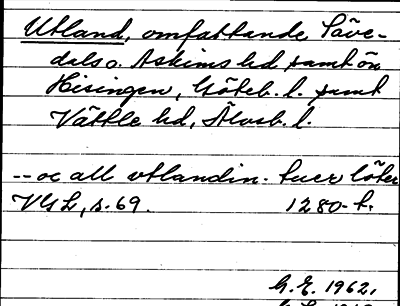 Utland, omfattande Säve-
dals o. Askims hd samt ön
Hisingen, Göteb. l. samt
Vättle hd, Älvsb. l.
-- oc all vtlandin. tuer löter
VGL, s. 69. 1280-t.
G.E. 1962.